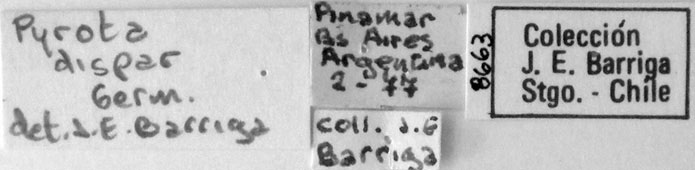 Pyrota
dispar
Germ.
det. J. E. Barriga
Pinamar
Bs Aires
Argentina
2-77
coll. J. E
Barriga
8663
Colección
J. E. Barriga
Stgo. - Chile